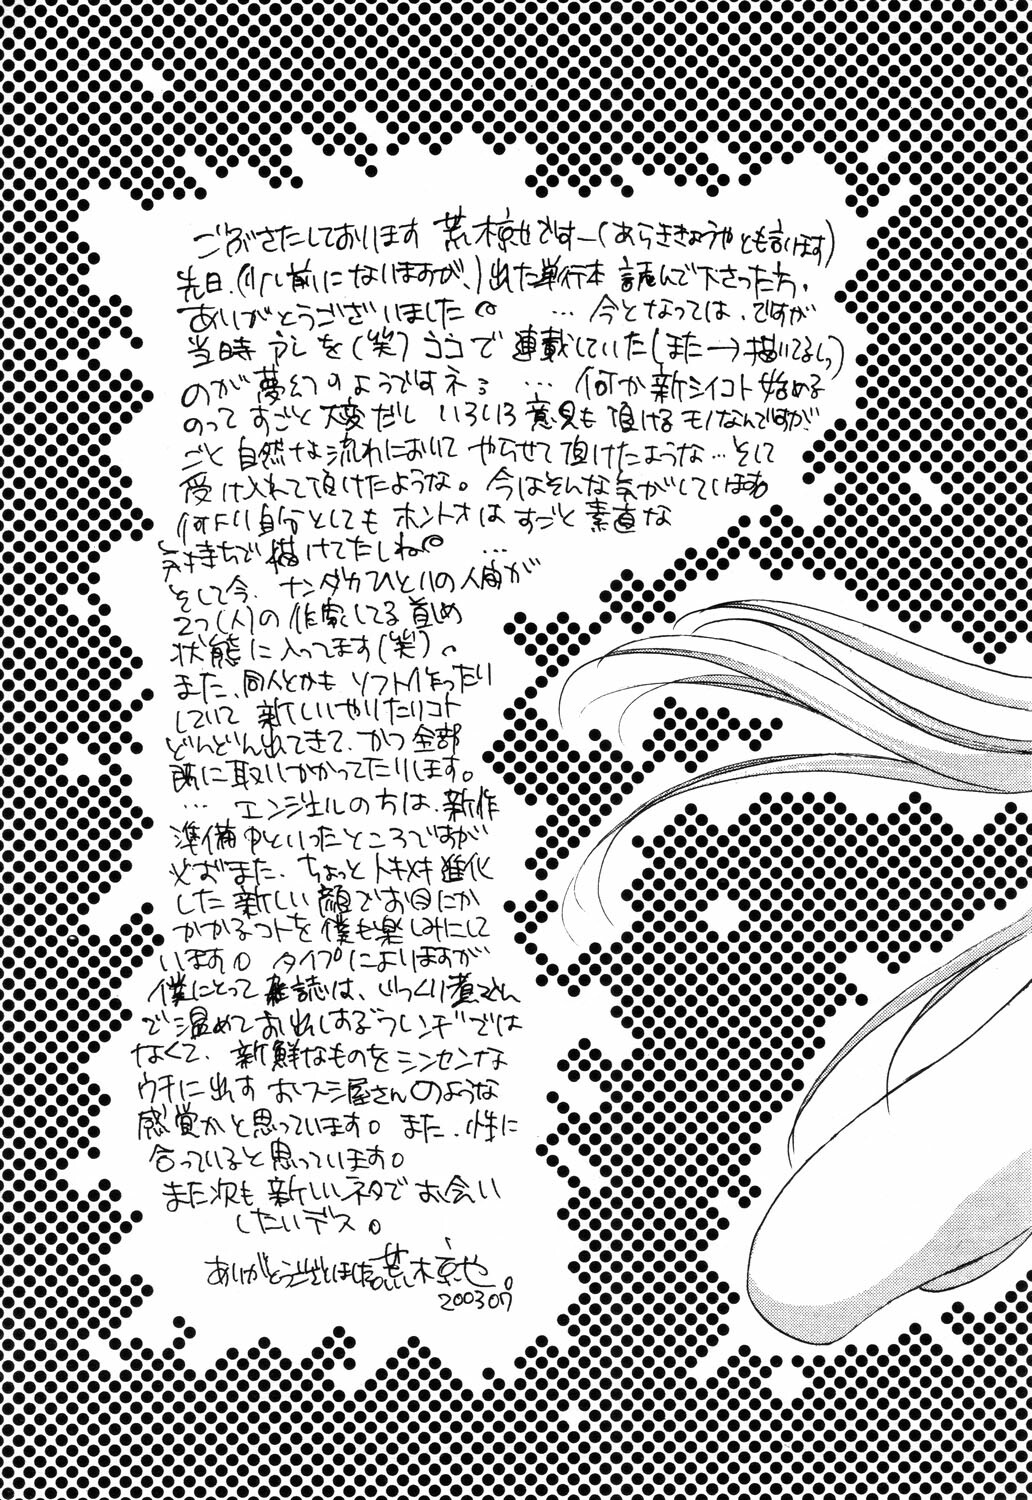 ごぶさたしております 荒木京也ですー(あらききょうやとも言います)
先日、(少し前になりますが、)出た単行本 読んで下さった方。
ありがとうございました。 … 今となっては、ですが
当時 アレを(笑)ココで 連載していた(また→描いてるし)
のが夢幻のようですネ … 何か新シイコト始める
のってすごと大変だし いろいろ意見も頂けるモノなんですが
ごと自然な流れにおいて やらせて頂けたような… そして
受け入れて頂けたような。今はそんな気がしていますね
何より自分としても ホントオはすごと素直な
気持ちで描けてたしね …
そして今、ナンダカひとりの人間が
2つ(人)の作家してる
状態に入ってます(笑)。
また、同人とかも ソフト作ったり
していて 新しいやりたいコト
どんどん出てきて、かつ全部
に取りかかってたりします。
… エンジェルの方は、新作
準備中といったところですが
また、ちょっとトキメキ進化
した新しい顔でお目にか
かかるコトを僕も楽しみにして
います。タイプによりますが
僕にとって雑誌は、じっくり煮こんで
で温めてお出しする
なくて、新鮮なものをシンセンな
ウチに出す おスシ屋さんのような
感覚かと思っています。また、性に
合っていると思っています。
また次も新しいネタでお会い
したいデス。
ありがとうございました 荒木京也。
200307